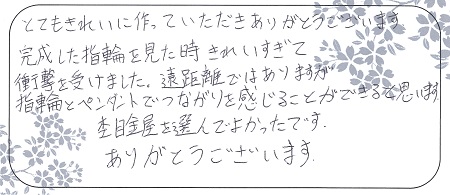 とてもきれいに作っていただきありがとうございます
完成した指輪を見た時きれいすぎて
衝撃を受けました。遠距離ではありますが
指輪とペンダントでつながりを感じることができると思います
杢目金屋を選んでよかったです.
ありがとうございます.